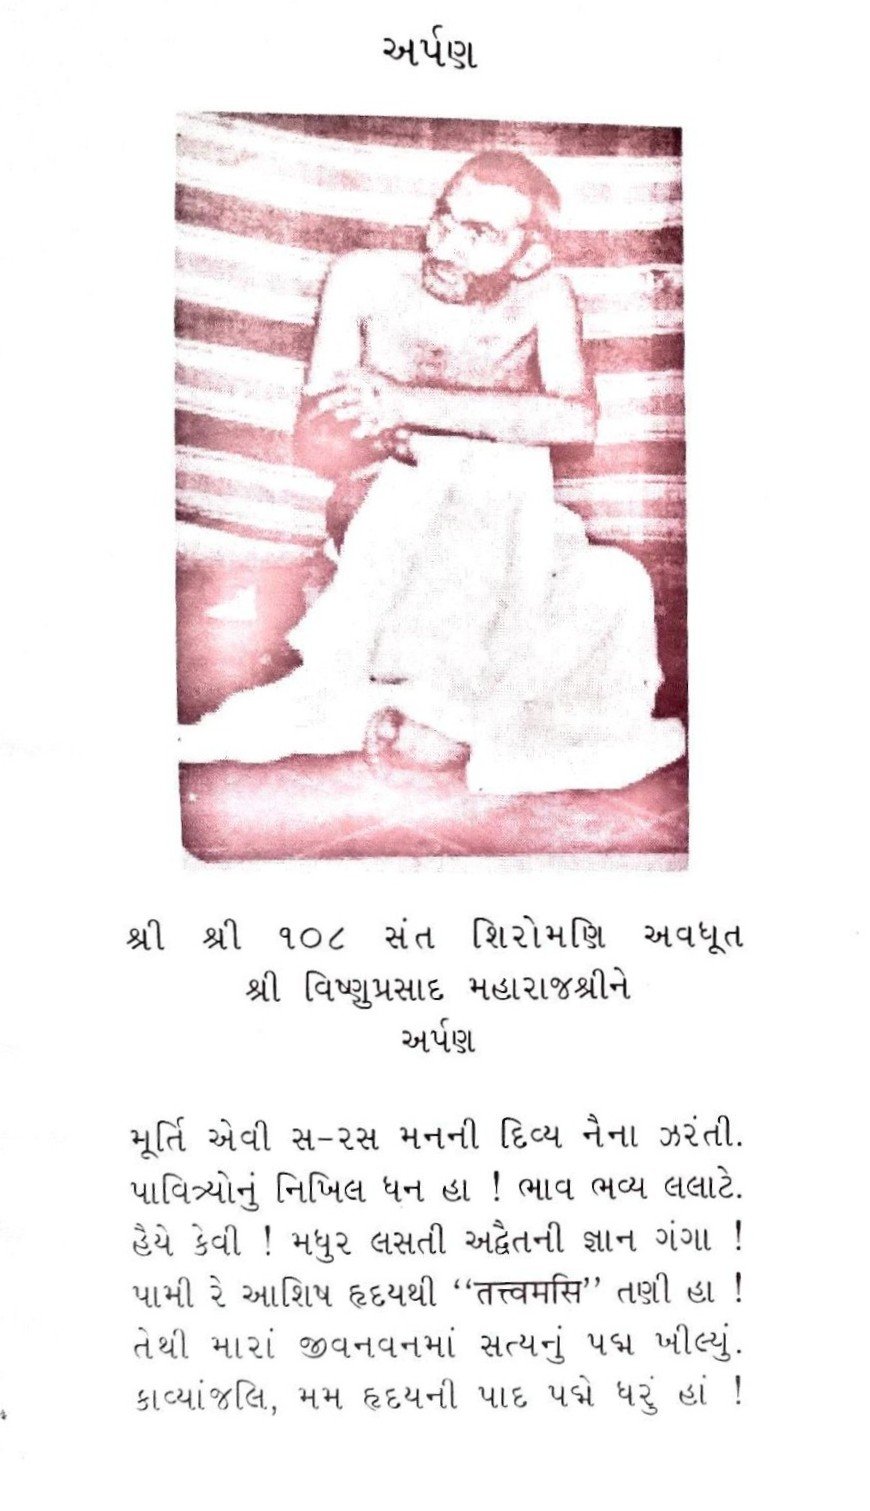 અર્પણ
શ્રી શ્રી ૧૦૮ સંત શિરોમણિ અવધૂત
શ્રી વિષ્ણુપ્રસાદ મહારાજશ્રીને
અર્પણ
મૂર્તિ એવી સ-રસ મનની દિવ્ય નૈના ઝરંતી.
પાવિત્ર્યોનું નિખિલ ધન હા ! ભાવ ભવ્ય લલાટે.
હૈયે કેવી ! મધુર લસતી અદ્વૈતની જ્ઞાન ગંગા !
પામી રે આશિષ હૃદયથી “तत्त्वमसि” તણી હા !
તેથી મારાં જીવનવનમાં સત્યનું પદ્મ ખીલ્યું.
કાવ્યાંજલિ, મમ હૃદયની પાદ પદ્મે ધરું હાં !